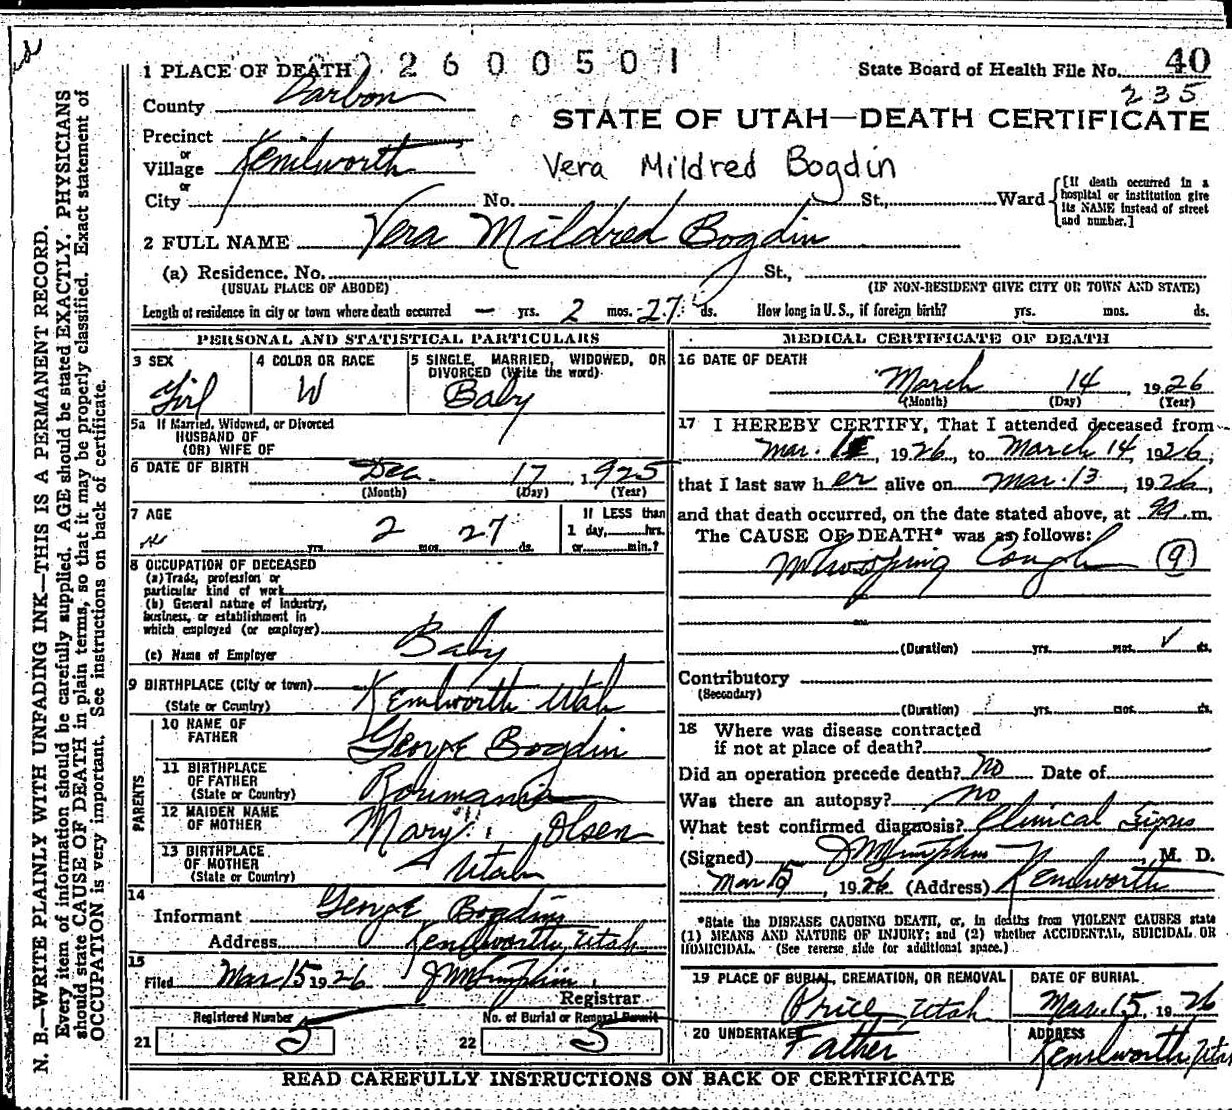 2600501
1 PLACE OF DEATH
State Board of Health File No. 40
235
County Carbon
STATE OF UTAH—DEATH CERTIFICATE
Precinct
or
Village Kenilworth
Vera Mildred Bogdin
or
City No. St., Ward
[If death occurred in a hospital or institution give its NAME instead of street and number.]
2 FULL NAME Vera Mildred Bogdin
(a) Residence. No. St.,
(USUAL PLACE OF ABODE) (IF NON-RESIDENT GIVE CITY OR TOWN AND STATE)
Length of residence in city or town where death occurred — yrs. 2 mos. 27 ds. How long in U. S., if foreign birth? yrs. mos. ds.
PERSONAL AND STATISTICAL PARTICULARS
3 SEX Girl
4 COLOR OR RACE W
5 SINGLE, MARRIED, WIDOWED, OR
DIVORCED (Write the word)
Baby
5a If Married, Widowed, or Divorced
HUSBAND OF
(OR) WIFE OF
6 DATE OF BIRTH Dec. 17, 1925
(Month) (Day) (Year)
7 AGE
yrs. 2 mos. 27 ds.
If LESS than
1 day, hrs.
or min.?
8 OCCUPATION OF DECEASED
(a) Trade, profession or
particular kind of work
(b) General nature of industry,
business, or establishment in
which employed (or employer)
Baby
(c) Name of Employer
9 BIRTHPLACE (City or town)
(State or Country) Kenilworth Utah
PARENTS
10 NAME OF
FATHER George Bogdin
11 BIRTHPLACE
OF FATHER
(State or Country) Roumania
12 MAIDEN NAME
OF MOTHER Mary Olsen
13 BIRTHPLACE
OF MOTHER
(State or Country) Utah
14
Informant George Bogdin
Address Kenilworth, Utah
15
Filed Mar 15 1926
Registrar
Registered Number
21 5
No. of Burial or Removal Permit
22 5
MEDICAL CERTIFICATE OF DEATH
16 DATE OF DEATH
March 14, 1926
(Month) (Day) (Year)
17 I HEREBY CERTIFY, That I attended deceased from
Mar. , 1926, to March 14, 1926,
that I last saw her alive on Mar. 13, 1926,
and that death occurred, on the date stated above, at m.
The CAUSE OF DEATH* was as follows:
Whooping Cough (9)
(Duration) yrs. mos. ds.
Contributory
(Secondary)
(Duration) yrs. mos. ds.
18 Where was disease contracted
if not at place of death?
Did an operation precede death? No Date of
Was there an autopsy? No
What test confirmed diagnosis? Clinical Signs
(Signed) , M. D.
Mar 15, 1926 (Address) Kenilworth
*State the DISEASE CAUSING DEATH, or, in deaths from VIOLENT CAUSES state
(1) MEANS AND NATURE OF INJURY; and (2) whether ACCIDENTAL, SUICIDAL OR
HOMICIDAL. (See reverse side for additional space.)
19 PLACE OF BURIAL, CREMATION, OR REMOVAL
Price Utah
DATE OF BURIAL
Mar. 15, 1926
20 UNDERTAKER
Father
ADDRESS
Kenilworth, Utah
READ CAREFULLY INSTRUCTIONS ON BACK OF CERTIFICATE
N. B.—WRITE PLAINLY WITH UNFADING INK—THIS IS A PERMANENT RECORD.
Every item of information should be carefully supplied. AGE should be stated EXACTLY. PHYSICIANS
should state CAUSE OF DEATH in plain terms, so that it may be properly classified. Exact statement of
OCCUPATION is very important. See instructions on back of certificate.